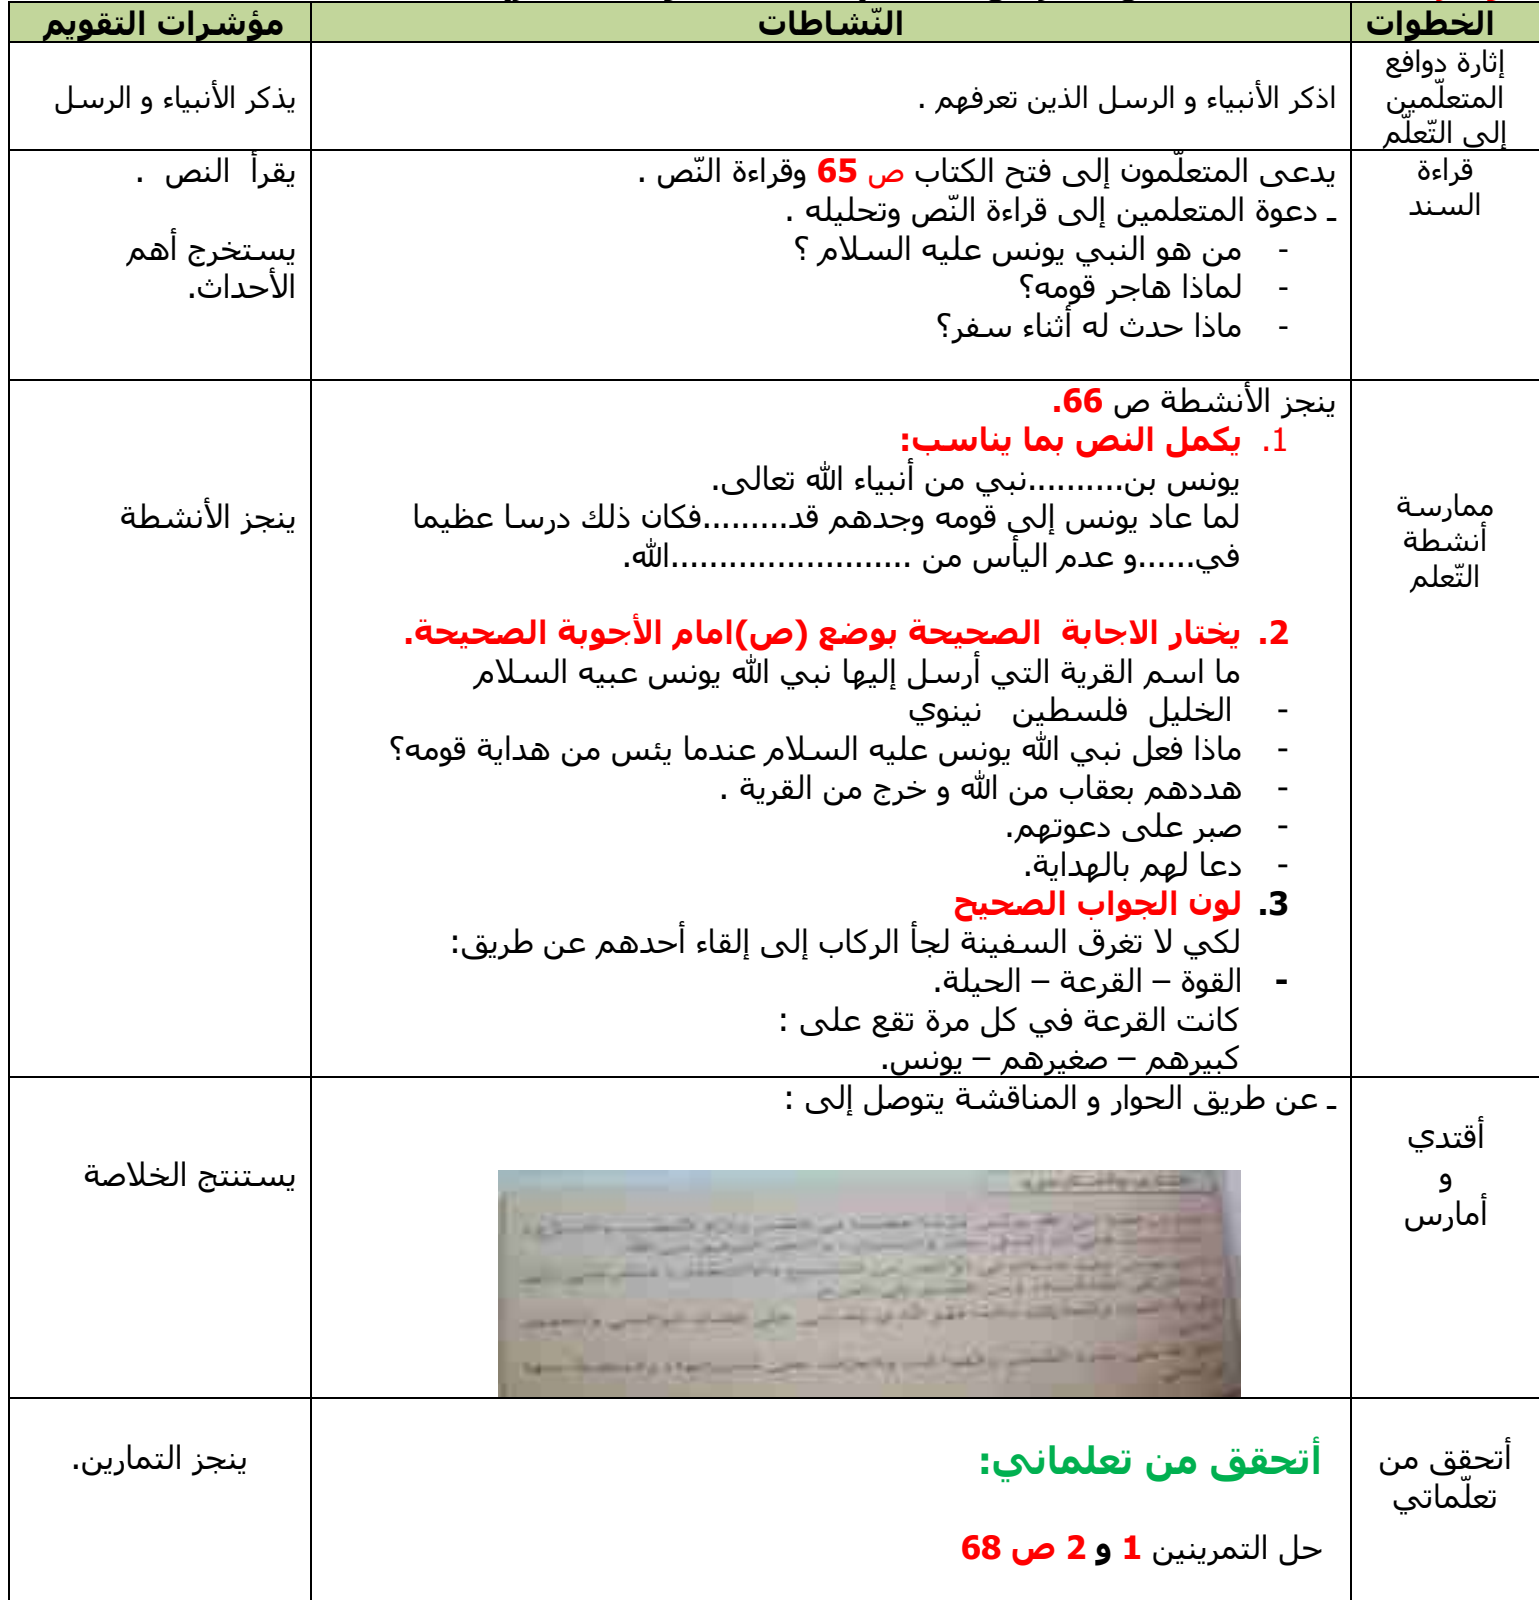 الخطوات النّشاطات مؤشرات التقويم
إثارة دوافع
المتعلّمين
إلى التّعلّم
اذكر الأنبياء و الرسل الذين تعرفهم .
يذكر الأنبياء و الرسل
قراءة
السند
يدعى المتعلّمون إلى فتح الكتاب ص 65 وقراءة النّص .
ـ دعوة المتعلمين إلى قراءة النّص وتحليله .
- من هو النبي يونس عليه السلام ؟
- لماذا هاجر قومه؟
- ماذا حدث له أثناء سفر؟
يقرأ النص .
يستخرج أهم
الأحداث.
ممارسة
أنشطة
التّعلم
ينجز الأنشطة ص 66.
1. يكمل النص بما يناسب:
يونس بن..........نبي من أنبياء الله تعالى.
لما عاد يونس إلى قومه وجدهم قد.........فكان ذلك درسا عظيما
في......و عدم اليأس من .........................الله.
2. يختار الاجابة الصحيحة بوضع (ص)امام الأجوبة الصحيحة.
ما اسم القرية التي أرسل إليها نبي الله يونس عبيه السلام
- الخليل فلسطين نينوي
- ماذا فعل نبي الله يونس عليه السلام عندما يئس من هداية قومه؟
- هددهم بعقاب من الله و خرج من القرية .
- صبر على دعوتهم.
- دعا لهم بالهداية.
3. لون الجواب الصحيح
لكي لا تغرق السفينة لجأ الركاب إلى إلقاء أحدهم عن طريق:
- القوة – القرعة – الحيلة.
كانت القرعة في كل مرة تقع على :
كبيرهم – صغيرهم – يونس.
ينجز الأنشطة
أقتدي
و
أمارس
ـ عن طريق الحوار و المناقشة يتوصل إلى :
يستنتج الخلاصة
أتحقق من
تعلّماتي
أتحقق من تعلماني:
حل التمرينين 1 و 2 ص 68
ينجز التمارين.